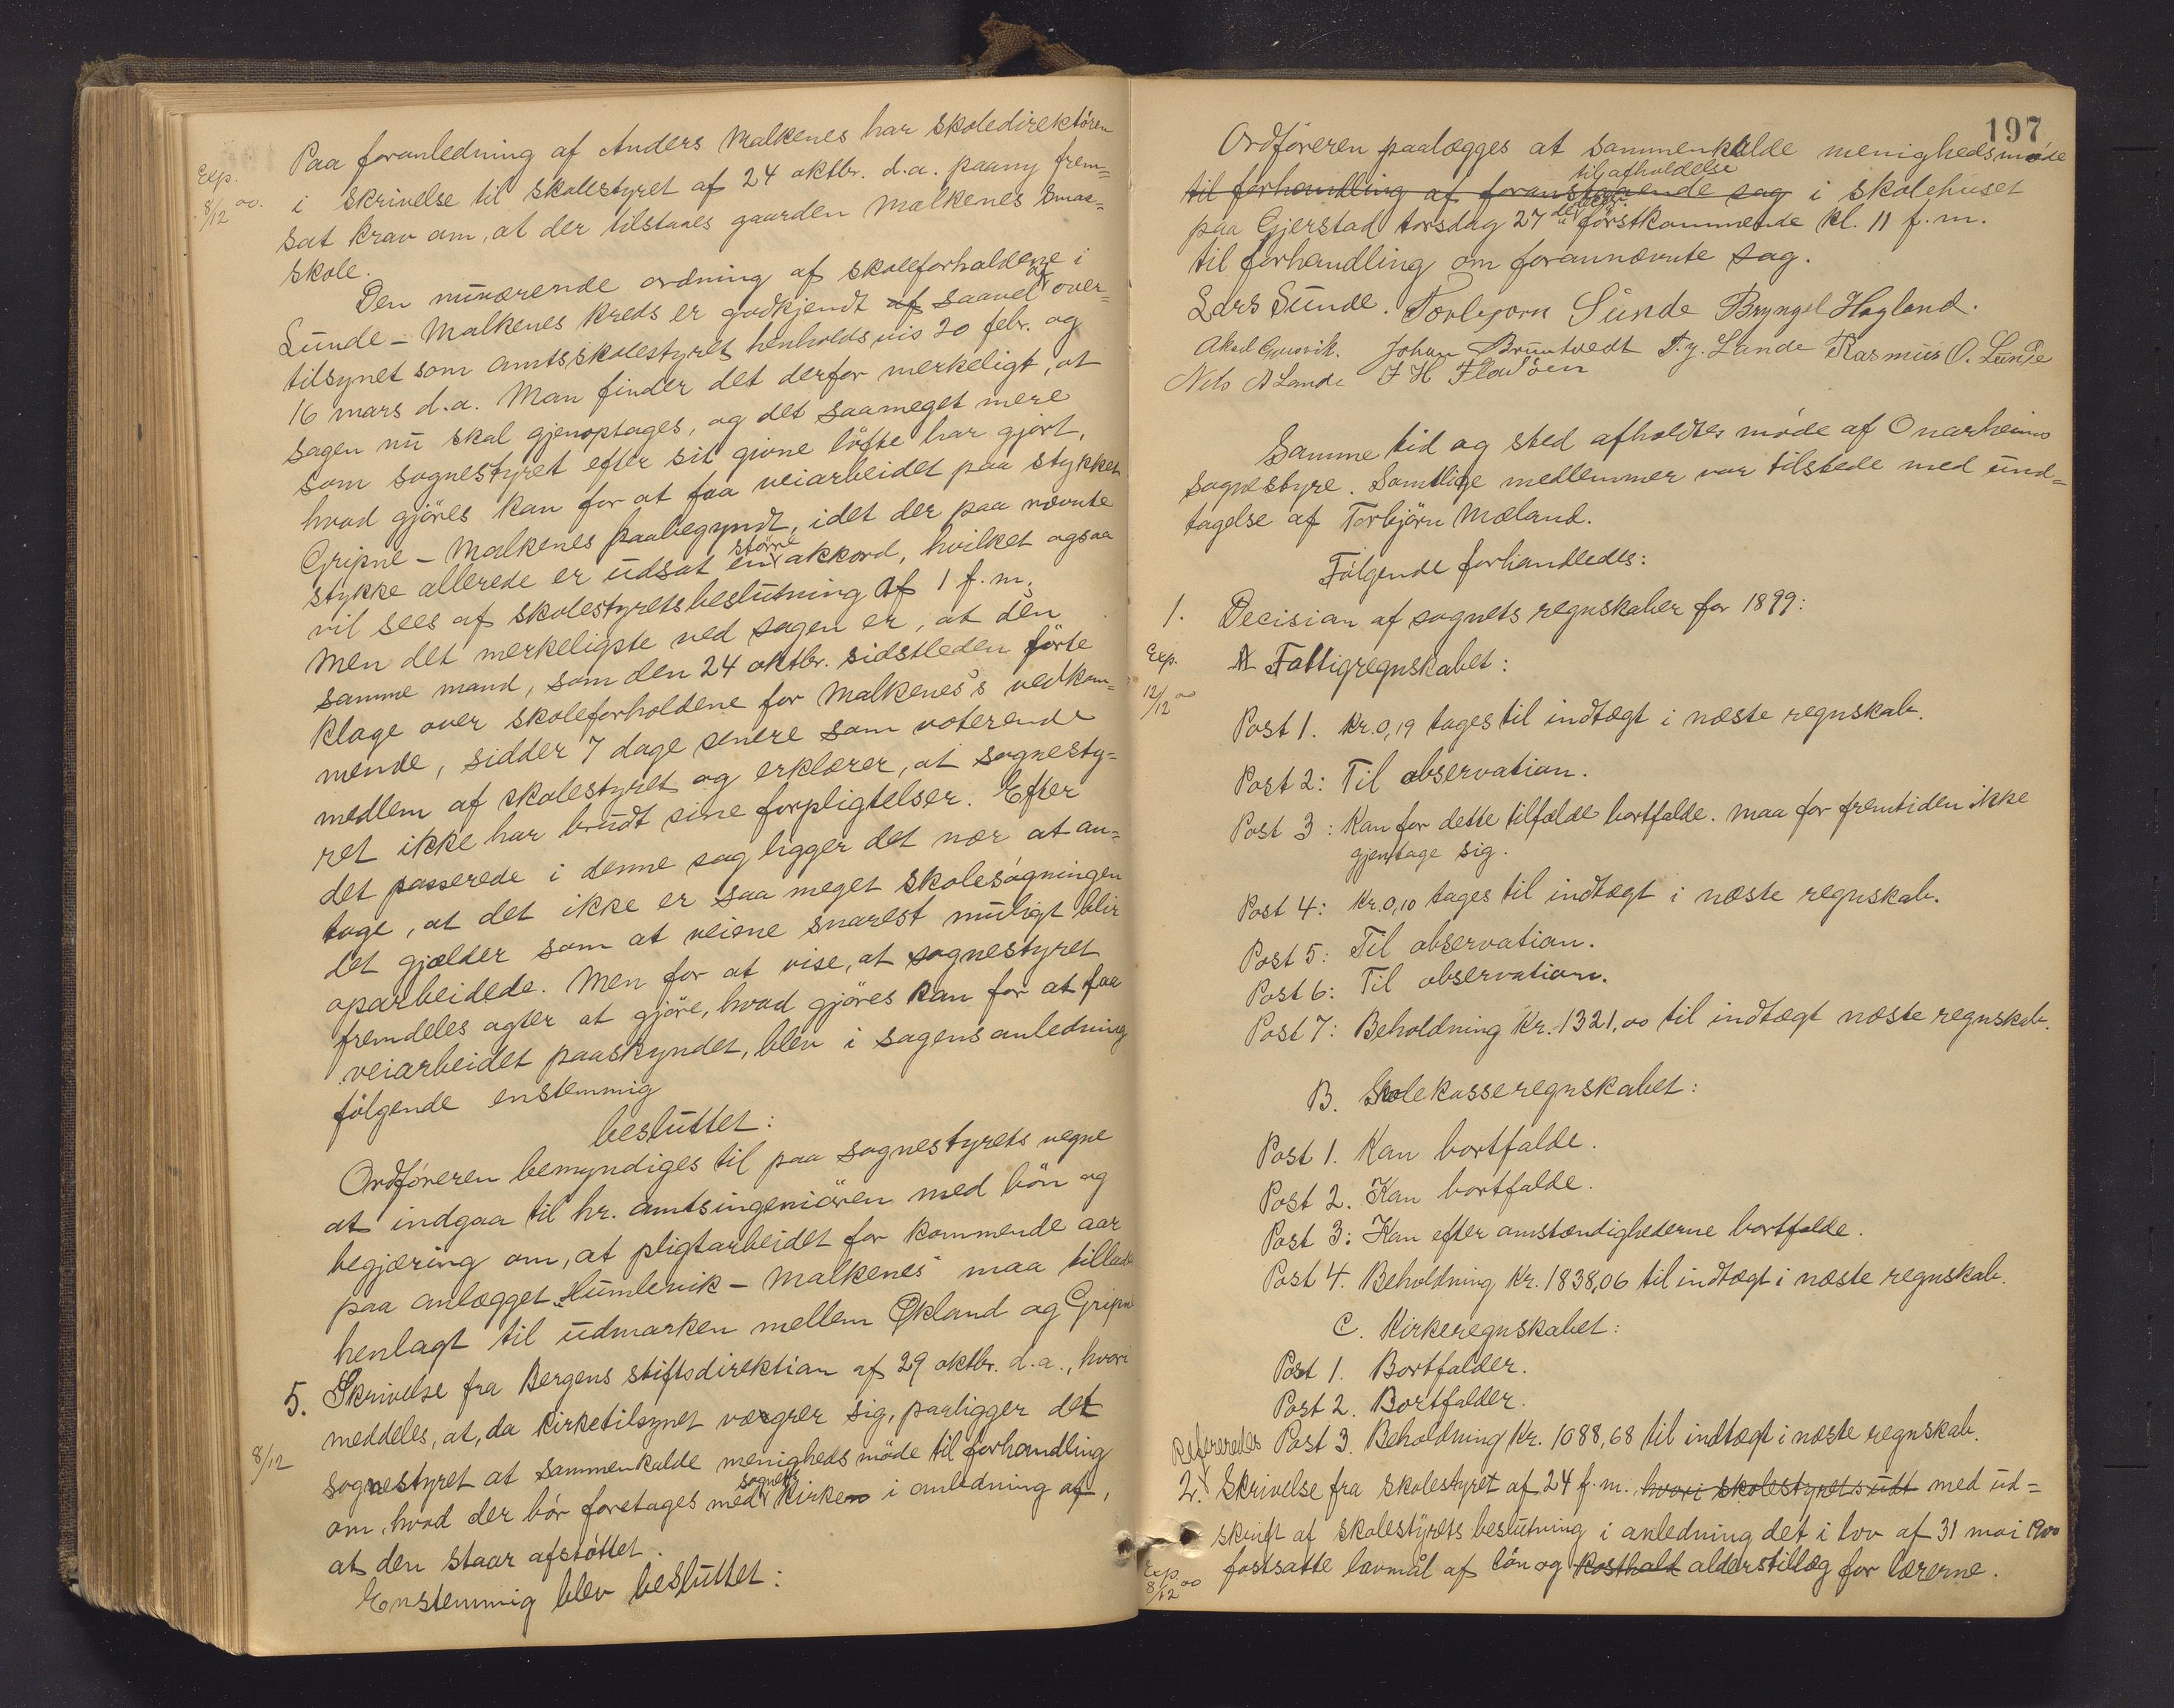 Paa foranledning af Anders Malkenes har skoledirektören
Exp. 8/12 00.
i skrivelse til skolestyret af 24 oktbr. d.a. paany frem=
sat krav om, at der tilstaaes gaarden Malkenes smaa=
skole.
Den nuværende ordning af skoleforholdene i
Lunde - Malkenes kreds er godkjendt af saavel af over=
tilsynet som amtsskolestyret henholdsvis 20 febr. og
16 mars d.a. Man finder det derfor merkeligt, at
sagen nu skal gjenoptages, og det saameget mere
som sognestyret efter sit givne löfte har gjort,
hvad gjöres kan for at faa veiarbeidet paa stykket
Gripne - Malkenes paabegyndt, idet der paa nævnte
stykke allerede er udsat en större akkord, hvilket ogsaa
vil sees af skolestyrets beslutning af 1 f.m.
Men det merkeligste ved sagen er, at den
samme mand, som den 24 oktbr. sidstleden förte
klage over skoleforholdene for Malkenes's vedkom=
mende, sidder 7 dage senere som voterende
medlem af skolestyret og erklærer, at sognesty=
ret ikke har brudt sine forpligtelser. Efter
det passerede i denne sag ligger det nær at an=
tage, at det ikke er saa meget skolesögningen
det gjælder som at veiene snarest muligt blir
oparbeidede. Men for at vise, at sognestyret
fremdeles agter at gjöre, hvad gjöres kan for at faa
veiarbeidet paaskyndet, blev i sagens anledning
fölgende enstemmig
besluttet:
Ordföreren bemyndiges til paa sognestyrets vegne
at indgaa til hr. amtsingeniören med bön og
begjæring om, at pligtarbeidet for kommende aar
paa anlægget "Humlevik - Malkenes" maa tillades
henlagt til udmarken mellem Økland og Gripne
5. Skrivelse fra Bergens stiftsdirektion af 29 oktbr. d.a., hvori
meddeles, at, da kirketilsynet vægrer sig, paaligger det
8/12
sognestyret at sammenkalde menighedsmöde til forhandling
om, hvad der bör foretages med sognets kirken i anledning af,
at den staar afstöttet.
Enstemmig blev besluttet:
197
Ordföreren paalægges at sammenkalde menighedsmöde
til forhandling af foranstaaende sag til afholdelse i skolehuset
paa Gjerstad torsdag 27de förstkommende kl. 11 f.m.
til forhandling om forannævnte sag.
Lars Sunde. Torbjorn Sunde Bryngel Hagland.
Johan Bruntvedt T. J. Lande Rasmus O. Lunde
Nils A Lande
Samme tid og sted afholdtes möde af Onarheims
sognestyre. Samtlige medlemmer var tilstede med und=
tagelse af Torbjörn Mæland.
Fölgende forhandledes:
1. Decision af sognets regnskaber for 1899:
Exp. 12/12 00
A Fattigregnskabet:
Post 1. Kr. 0,19 tages til indtægt i næste regnskab.
Post 2: Til observation.
Post 3: Kan for dette tilfælde bortfalde. Maa for fremtiden ikke
gjentage sig.
Post 4: Kr. 0,10 tages til indtægt i næste regnskab.
Post 5: Til observation.
Post 6: Til observation.
Post 7: Beholdning Kr. 1321,00 til indtægt næste regnskab.
B. Skolekasseregnskabet:
Post 1. Kan bortfalde.
Post 2. Kan bortfalde.
Post 3: Kan efter omstændighederne bortfalde.
Post 4. Beholdning Kr. 1838,06 til indtægt i næste regnskab.
C. Kirkeregnskabet:
Post 1. Bortfalder.
Post 2. Bortfalder.
Post 3. Beholdning Kr. 1088,68 til indtægt i næste regnskab.
Refereredes
2. Skrivelse fra skolestyret af 24 f.m. hvori skolestyrets udt med ud=
skrift af skolestyrets beslutning i anledning det i lov af 31 mai 1900
Exp. 8/12 00
fastsatte lavmål af lön og kosthold alderstillæg for lærerne.